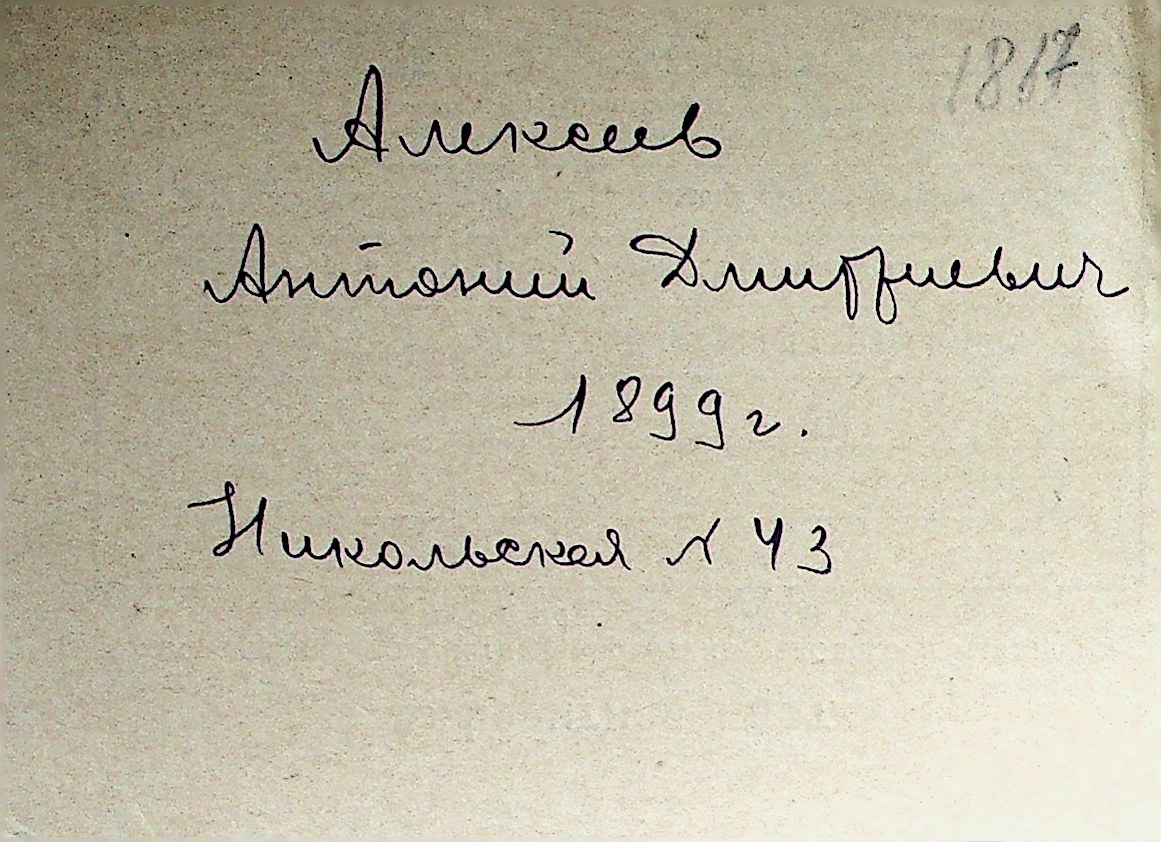 1817
Алексеев
Антоний Дмитриевич
1899 г.
Никольская № 43